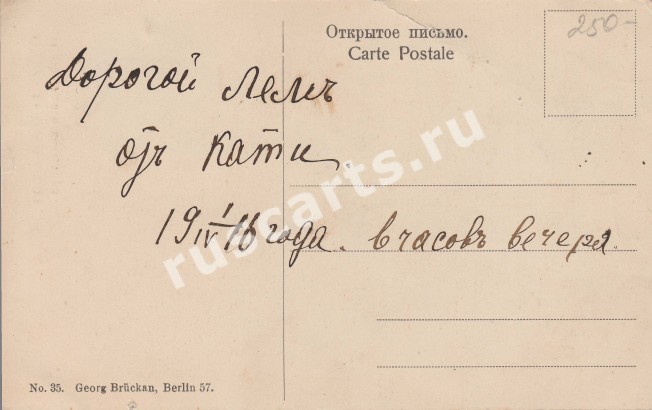 Открытое письмо.
Carte Postale
250-
Дорогой Лелѣ
отъ Кати
19 1/IV 16 года. 6 часовъ вечера.
No. 35. Georg Brückan, Berlin 57.
ruscarts.ru